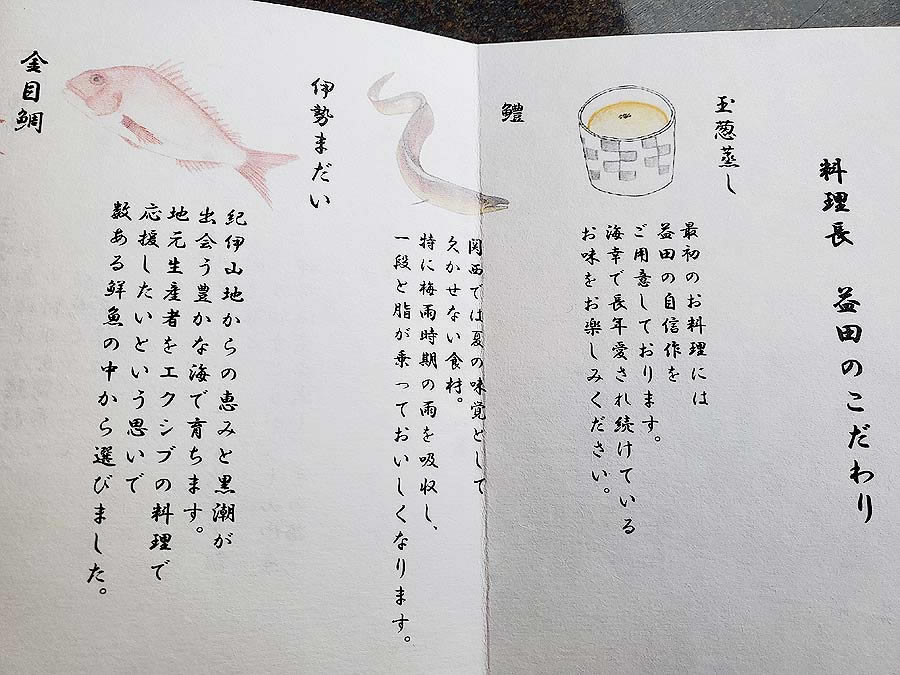 料理長 益田のこだわり
玉葱蒸し
最初のお料理には
益田の自信作を
ご用意しております。
海幸で長年愛され続けている
お味をお楽しみください。
鱧
関西では夏の味覚として
欠かせない食材。
特に梅雨時期の雨を吸収し、
一段と脂が乗っておいしくなります。
伊勢まだい
紀伊山地からの恵みと黒潮が
出会う豊かな海で育ちます。
地元生産者をエクシブの料理で
応援したいという思いで
数ある鮮魚の中から選びました。
金目鯛